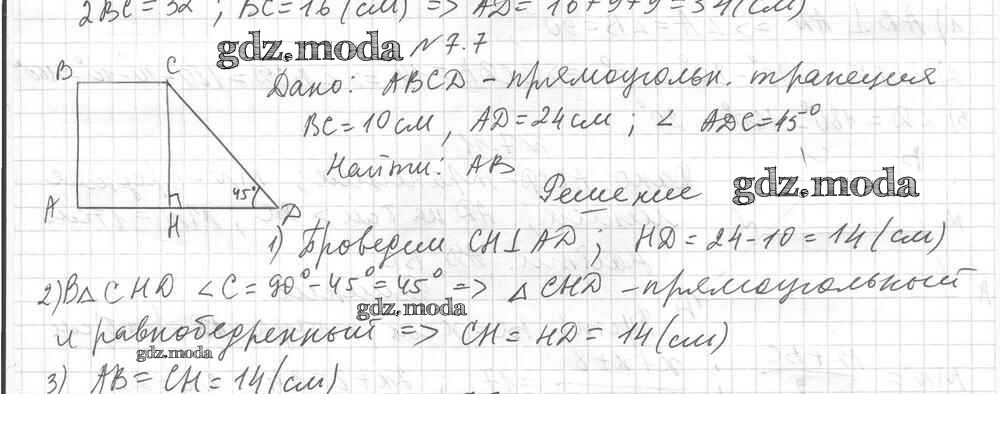 2BC = 32 ; BC = 16 (см) => AD = 16+9+9 = 34 (см)
gdz.moda
№ 7.7
Дано: ABCD - прямоугольн. трапеция
BC = 10 см, AD = 24 см ; ∠ ADC = 45°
Найти: AB
Решение
gdz.moda
B C
A H D
45°
1) Проведем CH ⊥ AD ; HD = 24 - 10 = 14 (см)
2) В △ CHD ∠C = 90° - 45° = 45° => △ CHD - прямоугольный
gdz.moda
и равнобедренный => CH = HD = 14 (см)
gdz.moda
3) AB = CH = 14 (см)